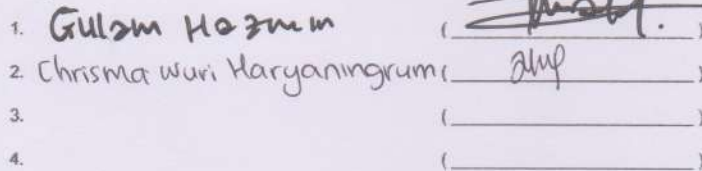 1. Gulam Hazmin (__________)
2. Chrisma Wuri Haryaningrum (__________)
3. (__________)
4. (__________)